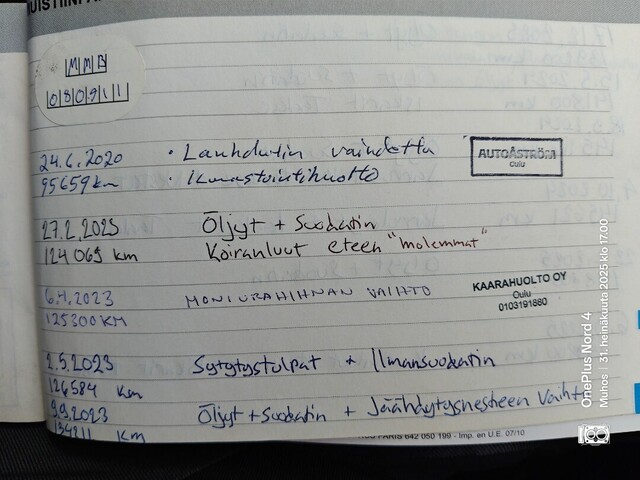 MMB
080911
24.6.2020 · Lauhdutin vaihdettu
95659km · Ilmastointihuolto
AUTOÅSTRÖM
OULU
27.2.2023 Öljyt + Suodatin
124 069 km Koiranluut eteen "molemmat"
6.4.2023 MONIURAHIHNAN VAIHTO
125300KM
KAARAHUOLTO OY
Oulu
0103191880
2.5.2023 Sytytystulpat + Ilmansuodatin
126584 km
9.9.2023 Öljyt + Suodatin + Jäähdytysnesteen vaiht
km
PARIS 642 050 199 - Imp. en U.E. 07/10
OnePlus Nord 4
Muhos | 31. heinäkuuta 2025 klo 17.00